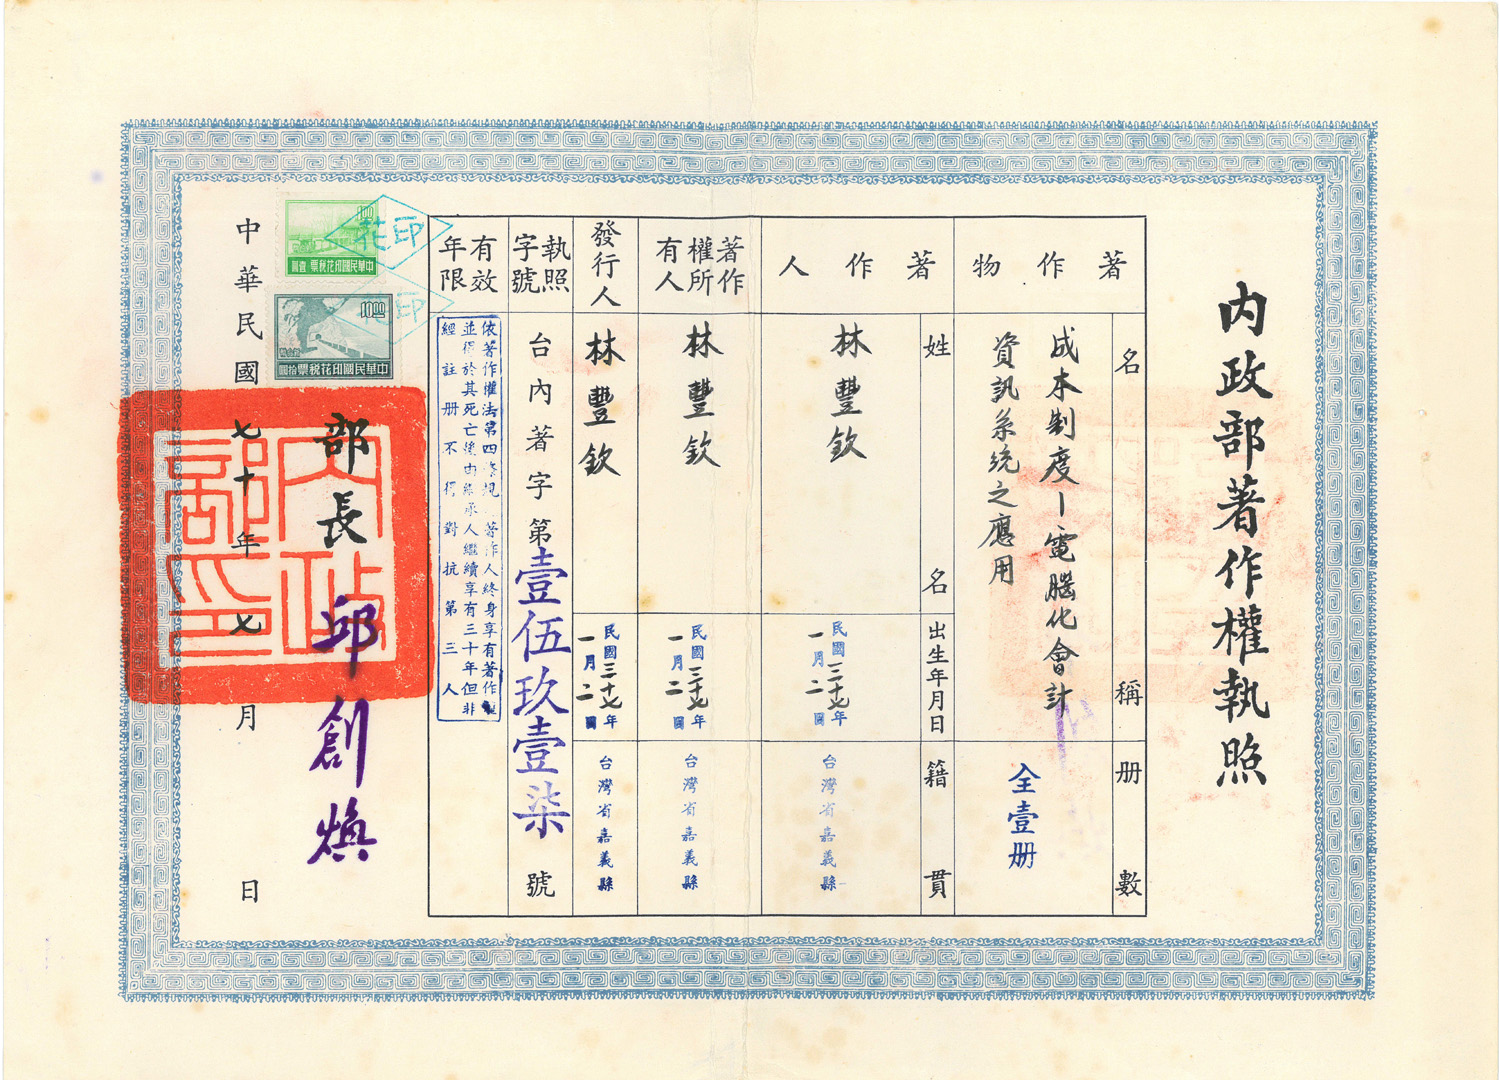 內政部著作權執照
著作物
名稱
冊數
成本制度－電腦化會計
資訊系統之應用
全壹冊
著作人
姓名
出生年月日
籍貫
林豐欽
民國三十七年
一月二
台灣省嘉義縣
著作
權所
有人
林豐欽
民國三十七年
一月二
台灣省嘉義縣
發行人
林豐欽
民國三十七年
一月二
台灣省嘉義縣
執照
字號
台內著字第壹伍玖壹柒號
有效
年限
依著作權法第四條規 著作人終身享有著作權
並得於其死亡後由繼承人繼續享有三十年但非
經註册不得對抗第三人
部長 邱創煥
內政部印
中華民國七十年七月日
印花
10.00
中華民國印花稅票 壹圓
印花
10.00
中華民國印花稅票 拾圓